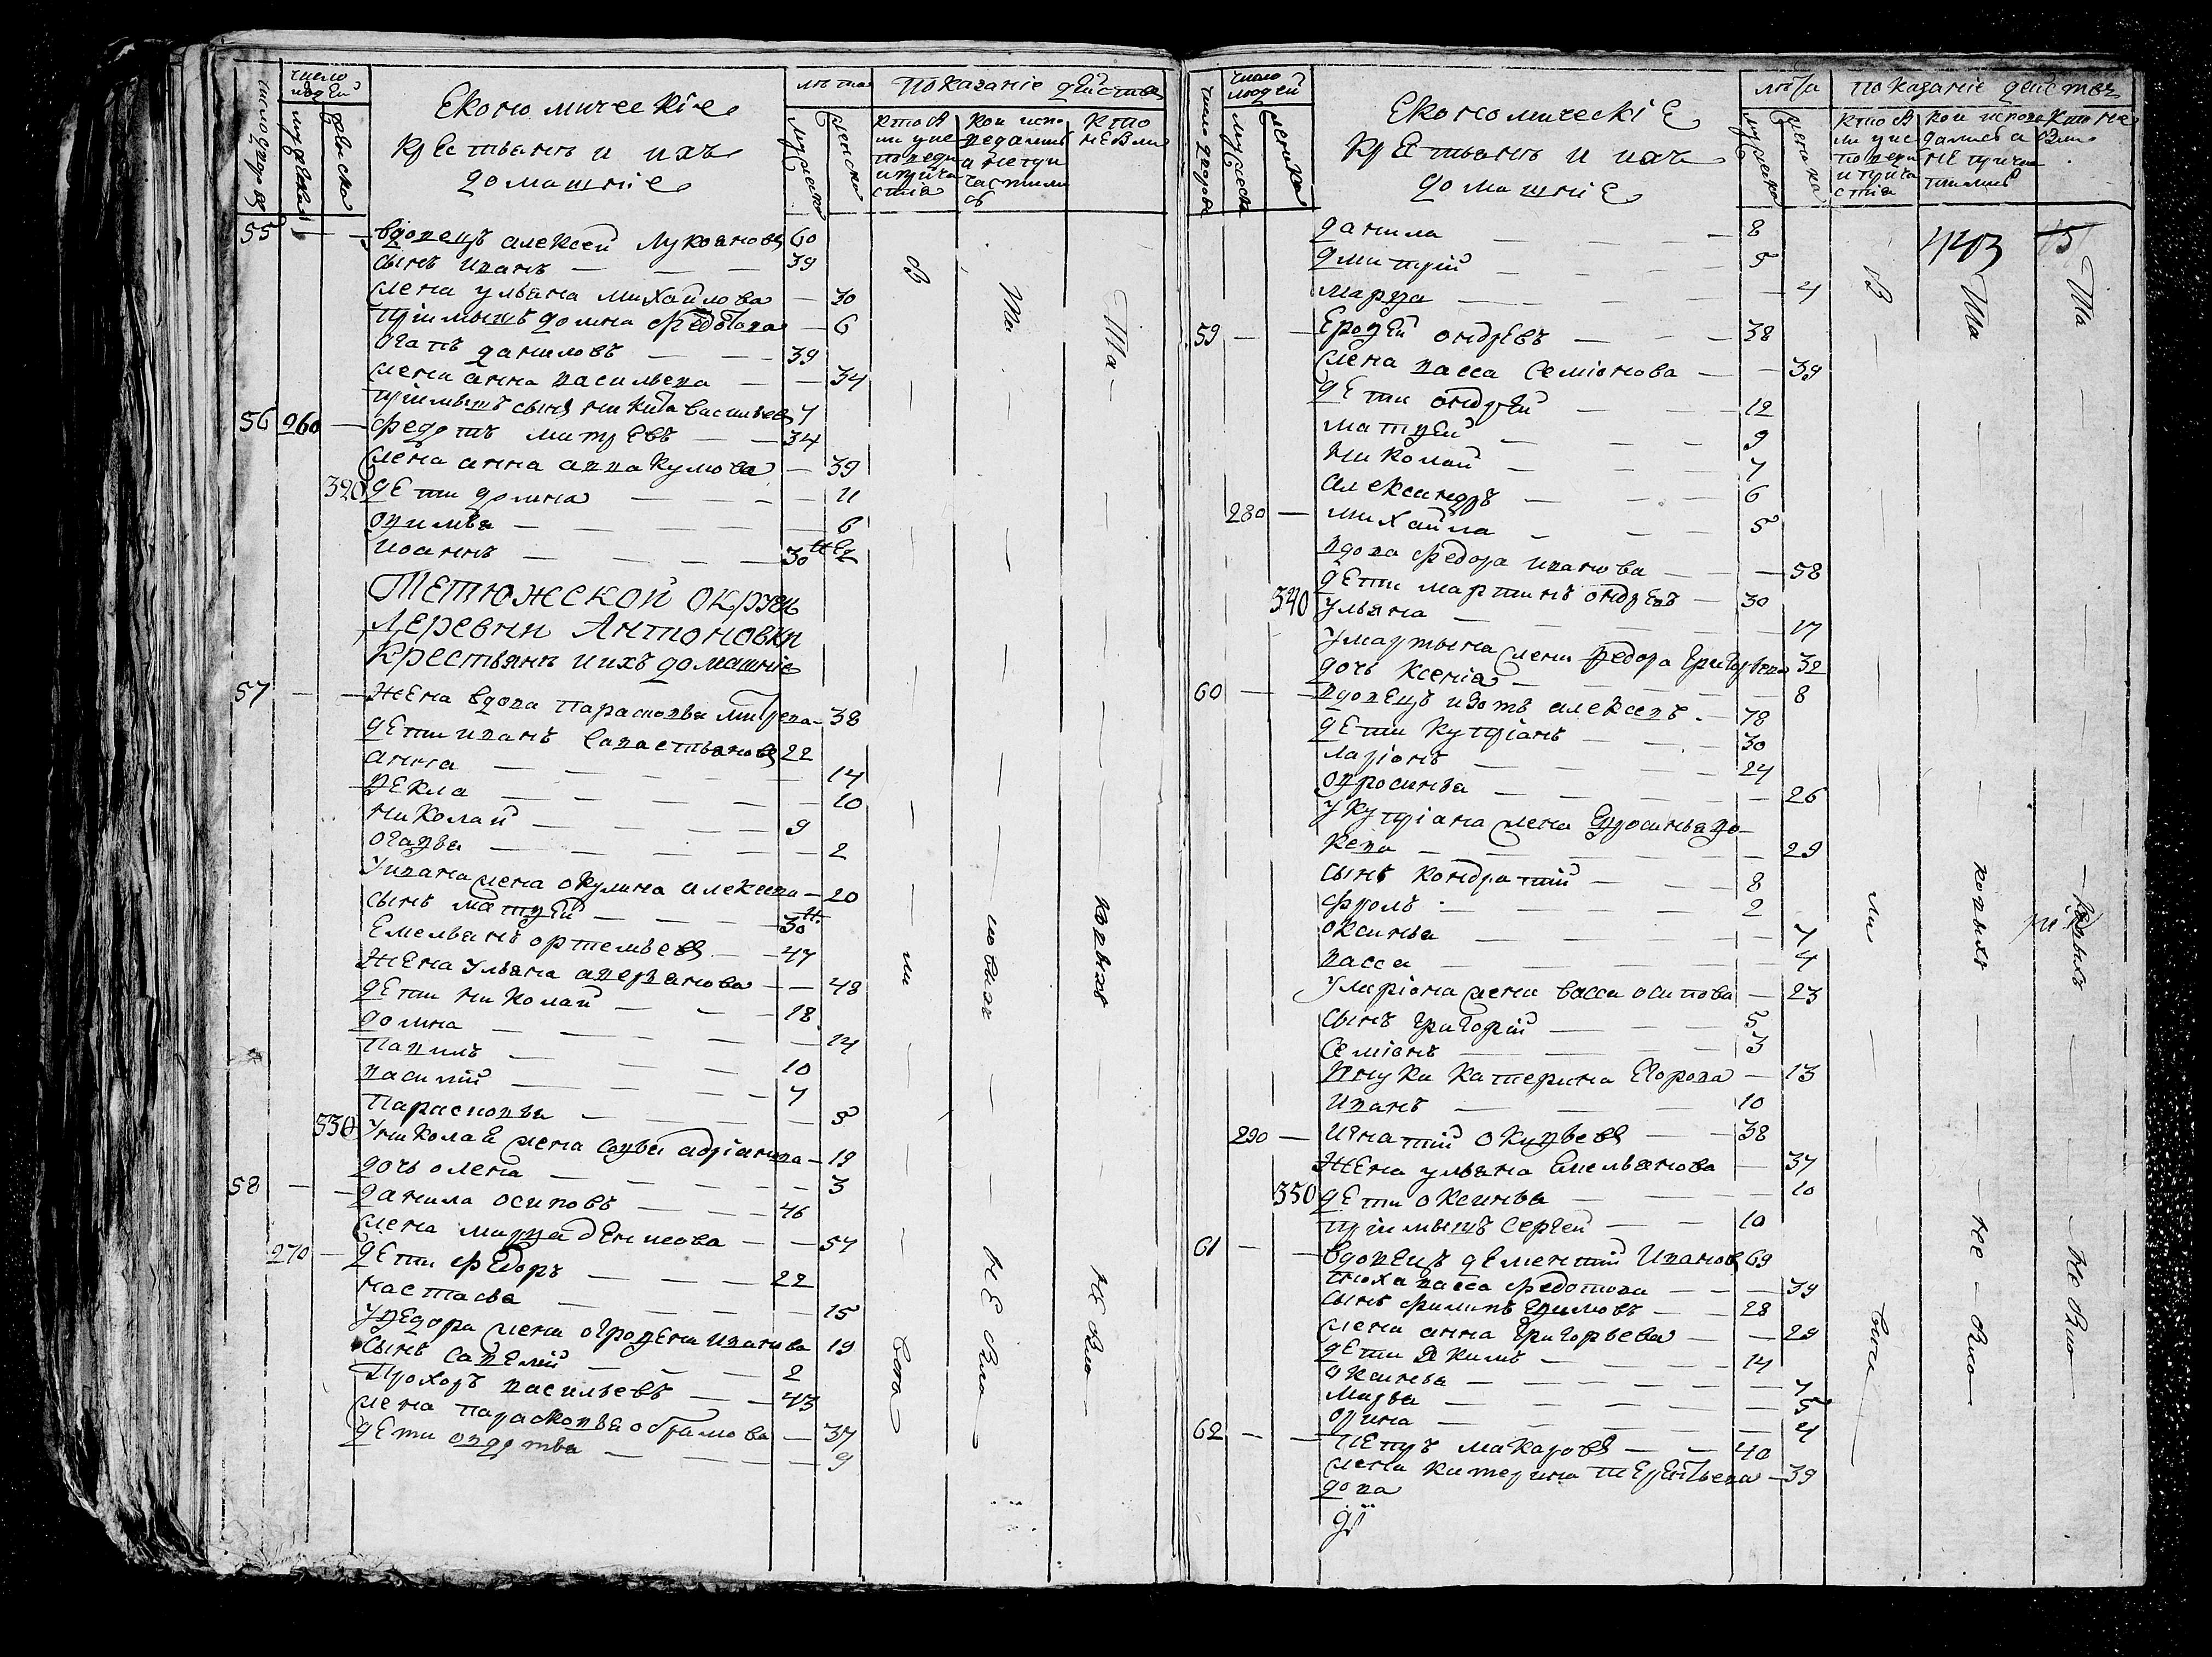 число дворовъ
число людей
мужеска
женска
Економическіе
крестьянъ и ихъ
домашніе
лѣта
мужеска
женска
показаніе действа
кто были у исповеди и причастія
кои исповедались а непричастились
кто небыли
55 — — вдовецъ алексей Лукояновъ 60
сынъ иванъ — — — 39
жена ульяна михайлова — 30
пріимышъ домна федотова — 6
агапъ даниловъ — — 39
жена анна васильева — — 34
пріимышъ сынъ никита васильевъ 7
56 260 — федотъ митревъ — — 34
жена анна аввакумова — 39
320 дети домна — — — 11
афимья — — — — 6
иоаннъ — — — — 30 нед
Тетюжской округи
Деревни Антоновки
Крестьянъ и ихъ домашніе
57 — — жена вдова парасковья митрева — 38
дети иванъ савастьяновъ 22
анна — — — — 14
векла — — — — 10
николай — — — 9
агафья — — — — 2
у ивана жена окулина алексева — 20
сынъ матвей — — — 30 н.
Емельянъ ортемьевъ — — 47
жена ульяна аверянова — — 48
дети николай — — — 18
домна — — — — 14
павилъ — — — 10
василій — — — 7
парасковья — — — 8
330 у николая жена савва адріанова — 19
дочь олена — — — — 3
58 — — данила осиповъ — — — 46
жена марва денисова — — 54
270 — дети федоръ — — — 22
настасья — — — — 15
у ведора жена огрофена иванова 19
сынъ савелій — — — 2
Прохоръ васильевъ — — 43
жена парасковья обрамова — 37
дети овдотья — — — — 9
В
—
ли
—
всего
Та
—
ковыхъ
—
не было
Та
—
ковыхъ
—
не было
число дворовъ
число людей
мужеска
женска
Економическіе
крестьянъ и ихъ
домашніе
лѣта
мужеска
женска
показаніе действа
кто были у исповеди и причастія
кои исповедались а не причастились
кто не были
данила — — — 8
дмитрій — — — 5
марва — — — — 4
59 — — Ерофей ондревъ — — — 38
жена васса семіонова — — 39
дети ондрей — — — 12
матвей — — — 9
николай — — — 7
александръ — — — 6
280 — михайла — — — 5
вдова федора иванова — — 58
дети мартинъ ондревъ — 30
340 ульяна — — — — 17
у мартына жена федора григорьева 32
дочь ксенія — — — — 8
60 — — вдовецъ изотъ алексевъ — 78
дети купріанъ — — — 30
ларіонъ — — — 24
офросинья — — — — 26
у купріана жена ефросинья
— — — — 29
сынъ кондратій — — 8
фролъ — — — 2
оксинья — — — — 7
васса — — — — 4
у ларіона жена васса осипова — 23
сынъ григорій — — — 5
семіонъ — — — 3
внуки катерина егорова — 13
иванъ — — — 10
290 — игнатій окупьевъ — — 38
жена ульяна емельянова — 37
350 дети оксинья — — — 10
пріимышъ сергей — — 10
61 — — вдовецъ дементій ивановъ 69
сноха васса федотова — — — 39
сынъ филипъ ефимовъ — — 28
жена анна григорьева — — 29
дети екимъ — — — 14
оксинья — — — — 7
марья — — — — 5
орина — — — — 4
62 — — Петръ макаровъ — — 40
жена катерина терентьева — 39
В
—
ли
—
всего
443
Та
—
ковыхъ
—
не — было
151
Та
—
ковыхъ
—
не было